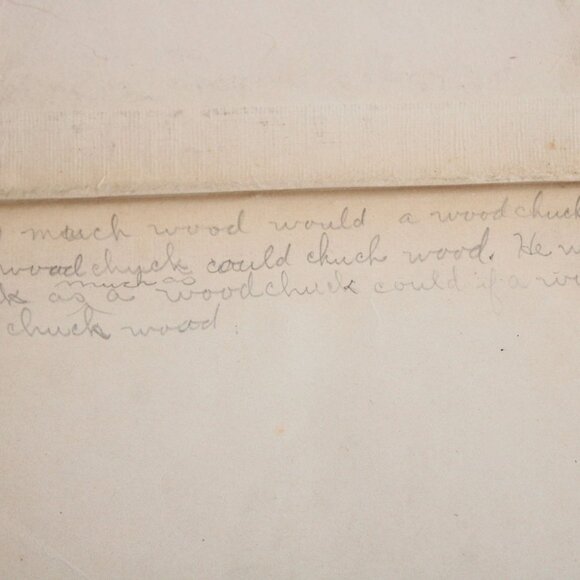 much wood would a woodchuck
woodchuck could chuck wood. He
as much as a woodchuck could if a
chuck wood.